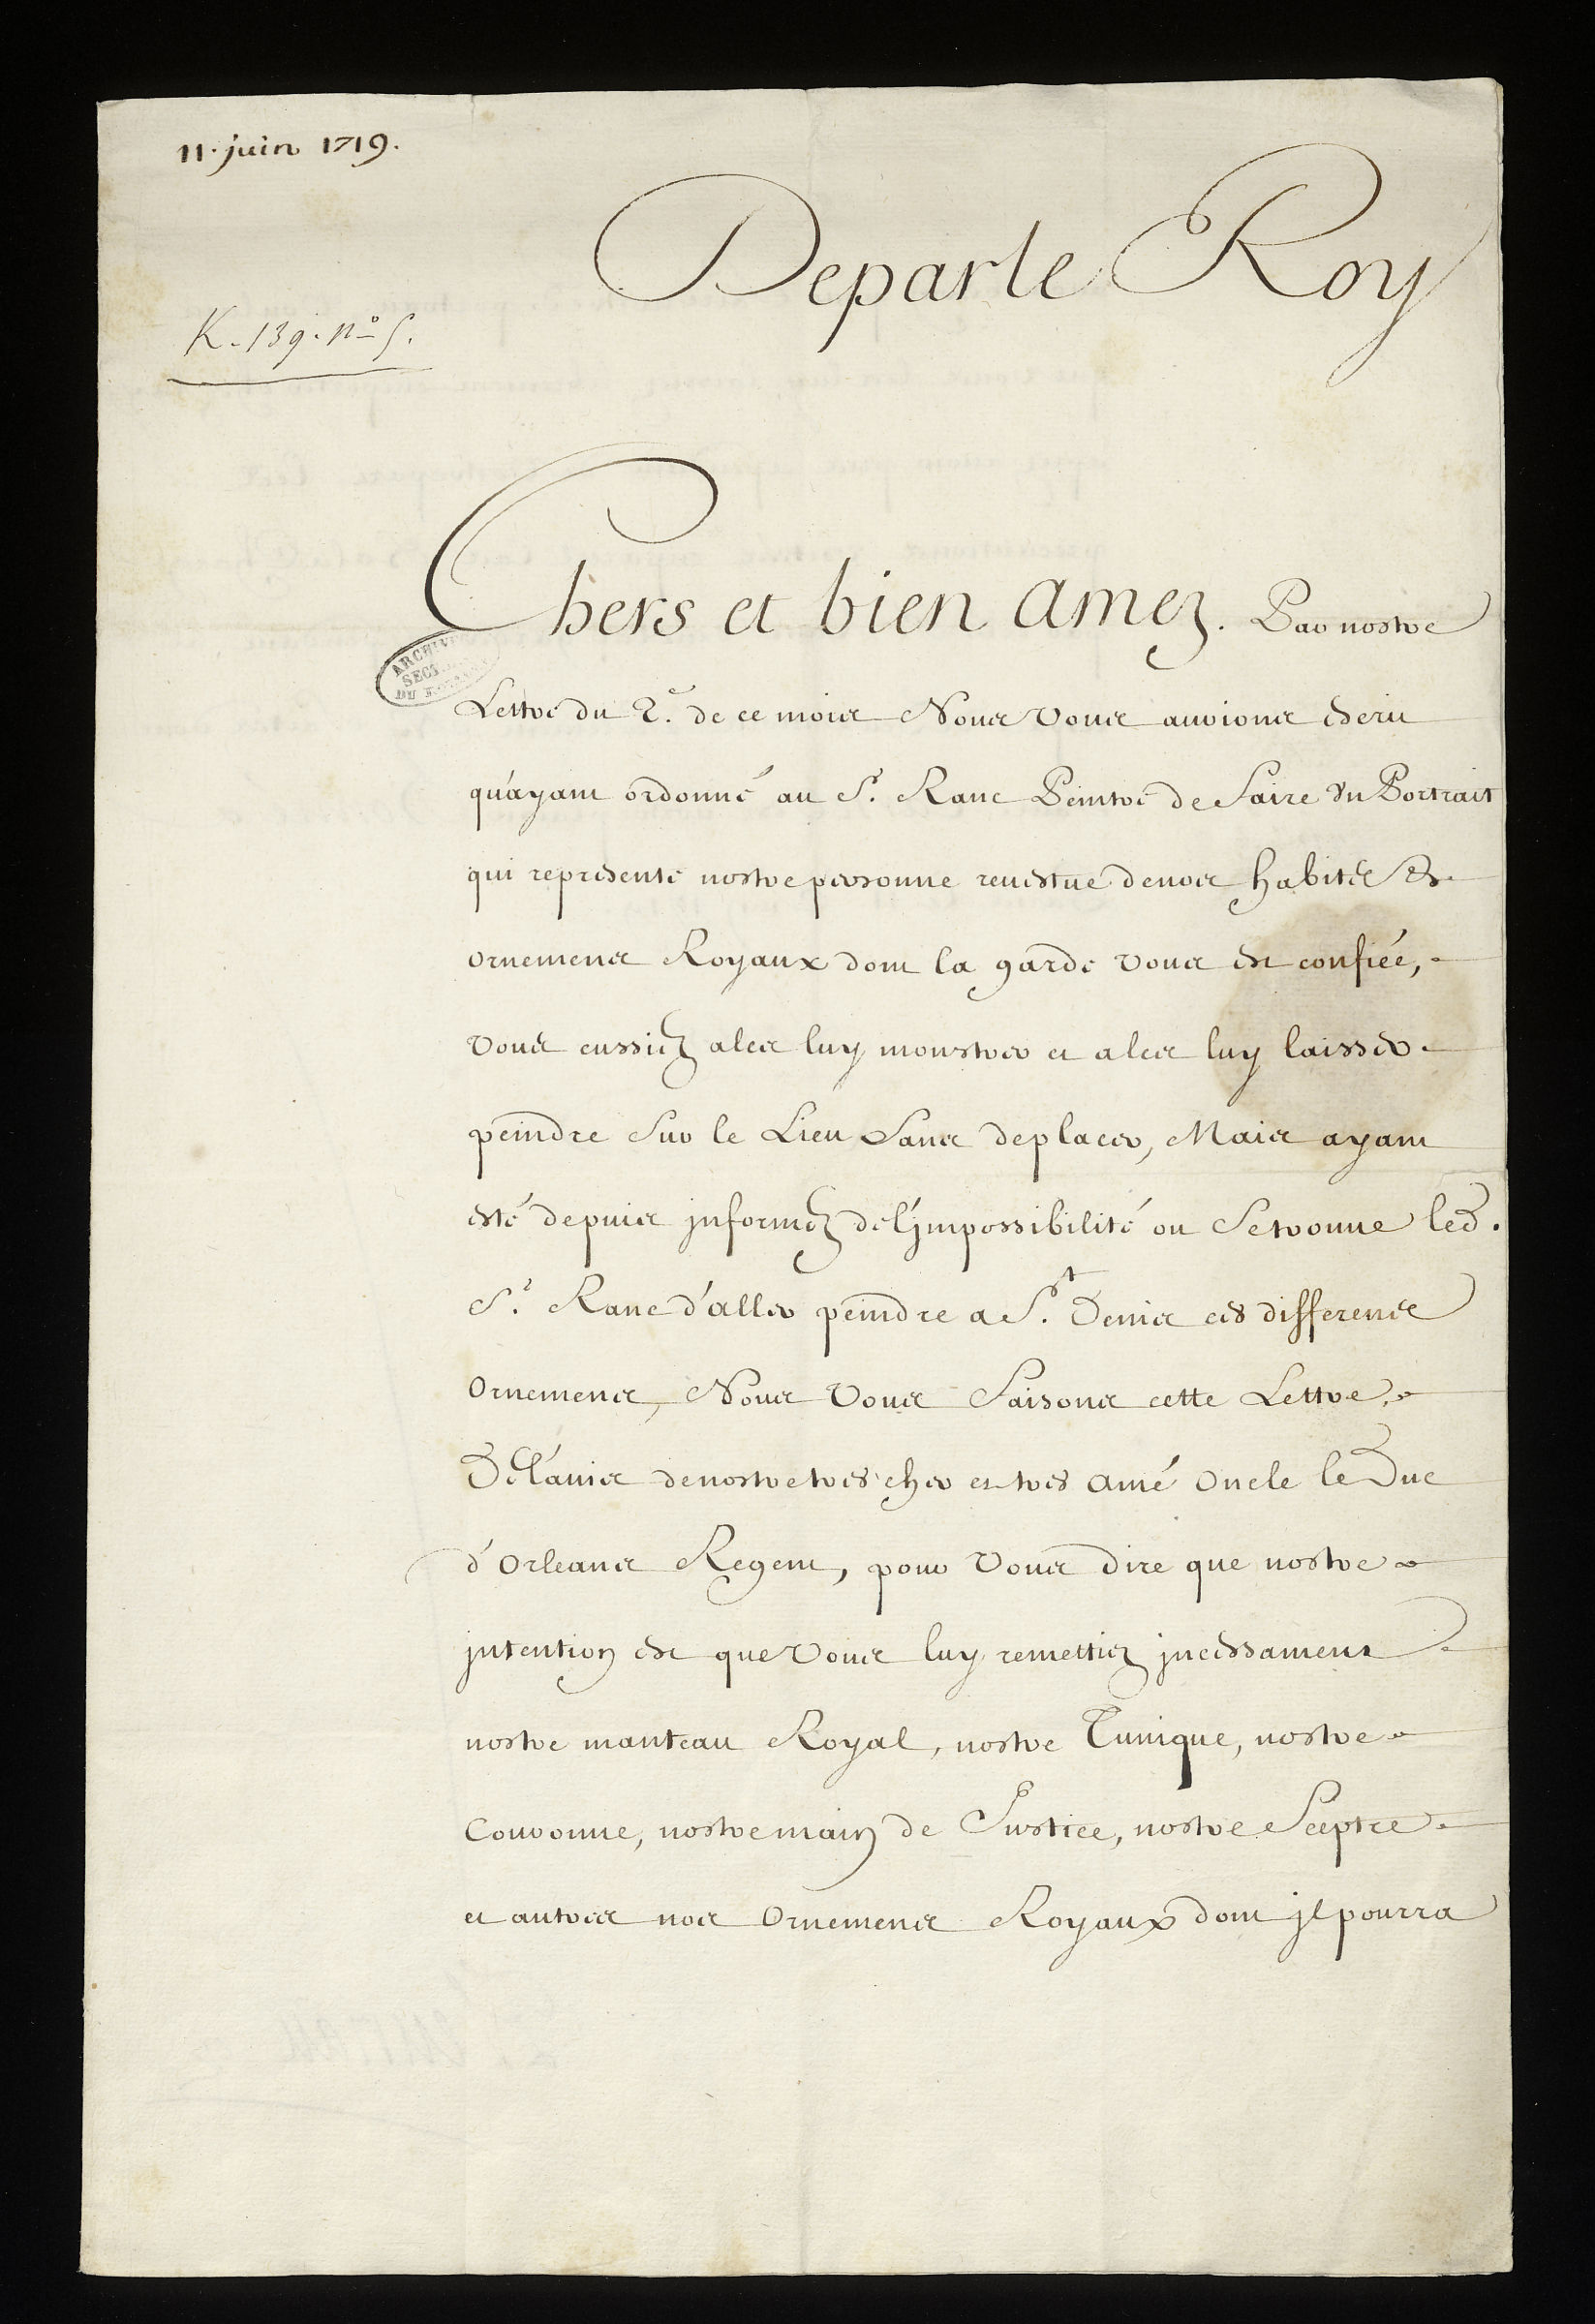 11. juin 1719.
De par le Roy
K. 139. nº 5.
Chers et bien amez. Par nostre
ARCHIV
SECT
DU
Lettre du 2.e de ce mois Nous vous aurions escrit
qu'ayant ordonné au Sr. Ranc Peintre de faire un Portrait
qui represente nostre personne revestue de nos habits et
ornemens Royaux dont la garde vous est confiée,
vous eussiez a les luy monstrer et a les luy laisser
peindre sur le Lieu sans deplacer, Mais ayant
esté depuis jnformez de l'jmpossibilité ou se trouve led.
Sr. Ranc d'aller peindre a St. Denis ces differens
ornemens, Nous vous faisons cette Lettre,
De l'avis de nostre tres cher et tres amé oncle le Duc
d'orleans Regent, pour vous dire que nostre
jntention est que vous luy remettiez jncessament
nostre manteau Royal, nostre Tunique, nostre
Couronne, nostre main de Justice, nostre Sceptre
et autres nos ornemens Royaux dont jl pourra